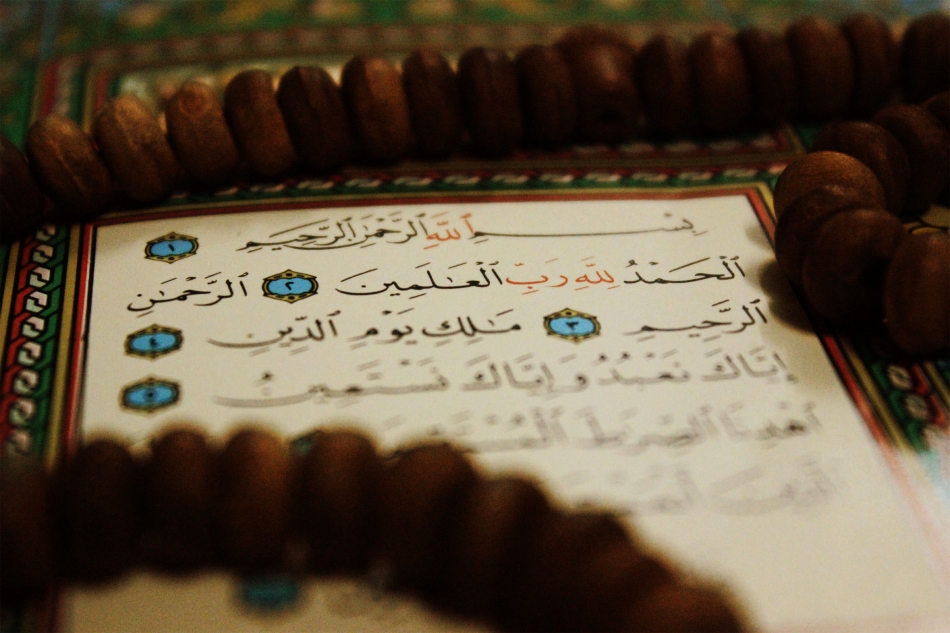 بِسْمِ ٱللَّهِ ٱلرَّحْمَٰنِ ٱلرَّحِيمِ ١
ٱلْحَمْدُ لِلَّهِ رَبِّ ٱلْعَٰلَمِينَ ٢ ٱلرَّحْمَٰنِ
ٱلرَّحِيمِ ٣ مَٰلِكِ يَوْمِ ٱلدِّينِ ٤
إِيَّاكَ نَعْبُدُ وَإِيَّاكَ نَسْتَعِينُ ٥
ٱهْدِنَا ٱلصِّرَٰطَ